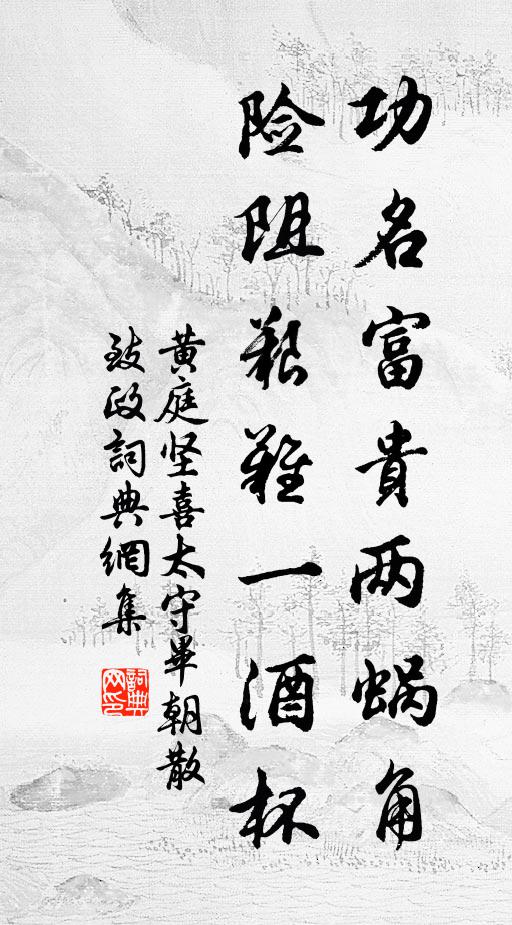 功名富貴两蜗角
险阻艱難一酒杯
黄庭坚喜太守畢朝散
致政詞典網集
詞典
网印